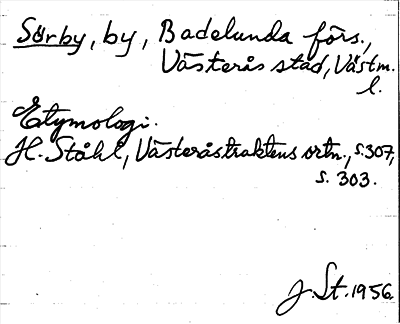 Sörby, by, Badelunda förs.,
Västerås stad, Västm.
l.
Etymologi.
H. Ståhl, Västeråstraktens ortn., s. 307,
s. 303.
J. St. 1956.